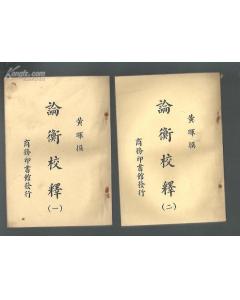 黃暉撰
論衡校釋
(一)
商務印書館發行
黃暉撰
論衡校釋
(二)
商務印書館發行